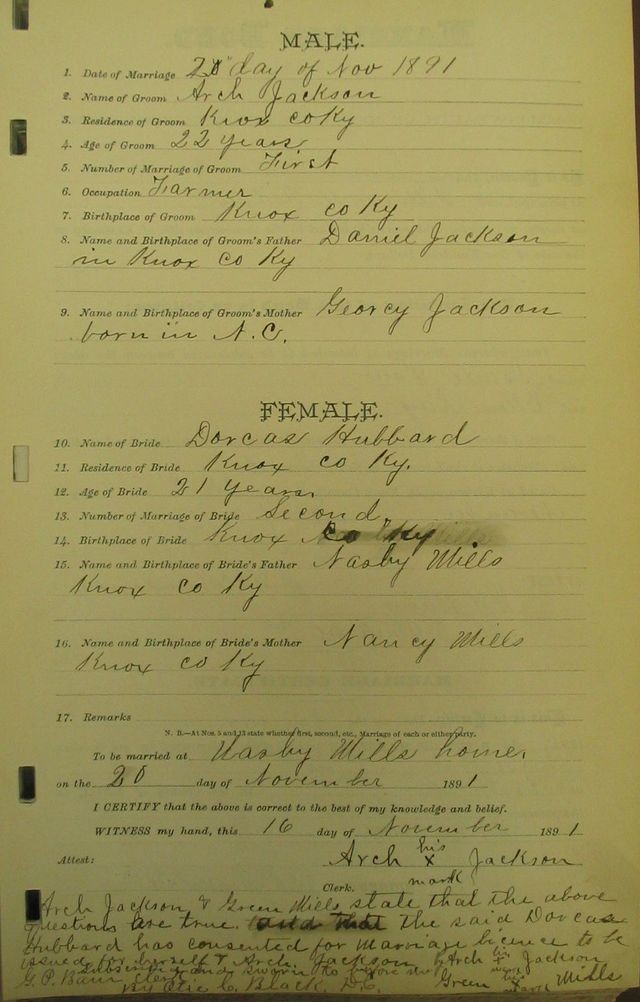 MALE.
1. Date of Marriage 20" day of Nov 1891
2. Name of Groom Arch Jackson
3. Residence of Groom Knox co Ky
4. Age of Groom 22 years
5. Number of Marriage of Groom First
6. Occupation Farmer
7. Birthplace of Groom Knox co Ky
8. Name and Birthplace of Groom's Father Daniel Jackson
in Knox co Ky
9. Name and Birthplace of Groom's Mother Georcy Jackson
born in N.C.
FEMALE.
10. Name of Bride Dorcas Hubbard
11. Residence of Bride Knox co Ky.
12. Age of Bride 21 years.
13. Number of Marriage of Bride Second
14. Birthplace of Bride Knox co Ky
15. Name and Birthplace of Bride's Father Nasby Mills
Knox co Ky
16. Name and Birthplace of Bride's Mother Nancy Mills
Knox co Ky
17. Remarks
N. B.—At Nos. 5 and 13 state whether first, second, etc., Marriage of each or either party.
To be married at Nasby Mills home.
on the 20 day of November 1891
I CERTIFY that the above is correct to the best of my knowledge and belief.
WITNESS my hand, this 16 day of November 1891
Attest: Arch his x mark Jackson
Clerk.
Arch Jackson & Green Mills state that the above
questions are true and that the said Dorcas
Hubbard has consented for marriage licence to be
issued for herself & Arch Jackson Arch his x mark Jackson
subscribed and sworn to before me Green his x mark Mills
G.P. Bain Clerk
By C. Black, D.C.